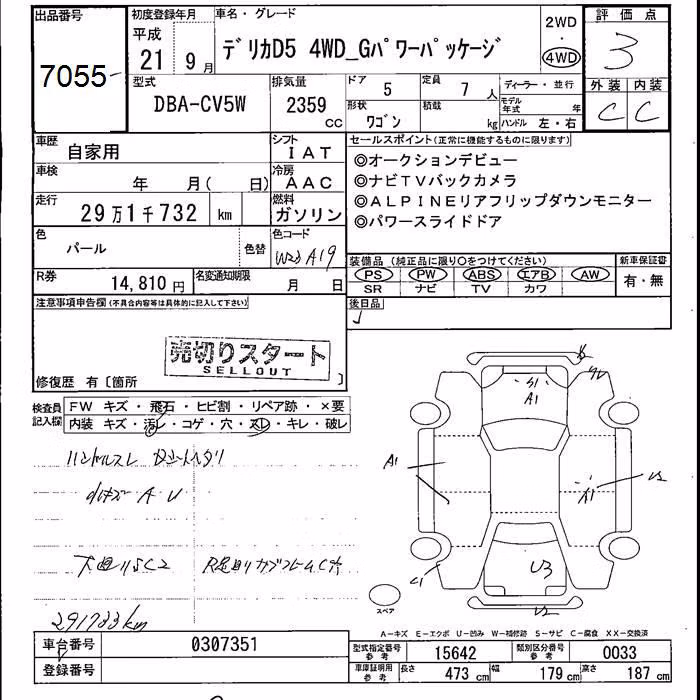 出品番号
7055
初度登録年月
平成
21 9月
車名・グレード
デリカD5 4WD_Gパワーパッケージ
2WD
・
4WD
評価点
3
外装 内装
C C
型式
DBA-CV5W
排気量
2359
CC
ドア
5
定員
7 人
ディーラー・並行
形状
ワゴン
積載
kg
モデル年式 年
ハンドル 左・右
車歴
自家用
シフト
IAT
車検
年 月( 日)
冷房
AAC
走行
29万1千732 km
燃料
ガソリン
色
パール
色替
色コード
W23 A19
R券
14,810円
名変通知期限
月 日
セールスポイント(正常に機能するものに限ります)
◎オークションデビュー
◎ナビTVバックカメラ
◎ALPINEリアフリップダウンモニター
◎パワースライドドア
装備品 (純正品に限り○をつけてください)
PS PW ABS エアB AW
SR ナビ TV カワ
新車保証書
有・無
後日品
注意事項申告欄(不具合内容等は具体的に記入して下さい)
売切りスタート
SELLOUT
修復歴 有〔箇所 〕
検査員記入欄
FW キズ・飛石・ヒビ割・リペア跡・×要
内装 キズ・汚レ・コゲ・穴・スレ・キレ・破レ
ハンドルスレ
A U
291733km
A1
A1
A1
U3
スペア
A-キズ E-エクボ U-凹み W-補修跡 S-サビ C-腐食 XX-交換済
車台番号
0307351
登録番号
型式指定番号 参考
15642
類別区分番号 参考
0033
車庫証明用 参考
長さ 473 cm 幅 179 cm 高さ 187 cm